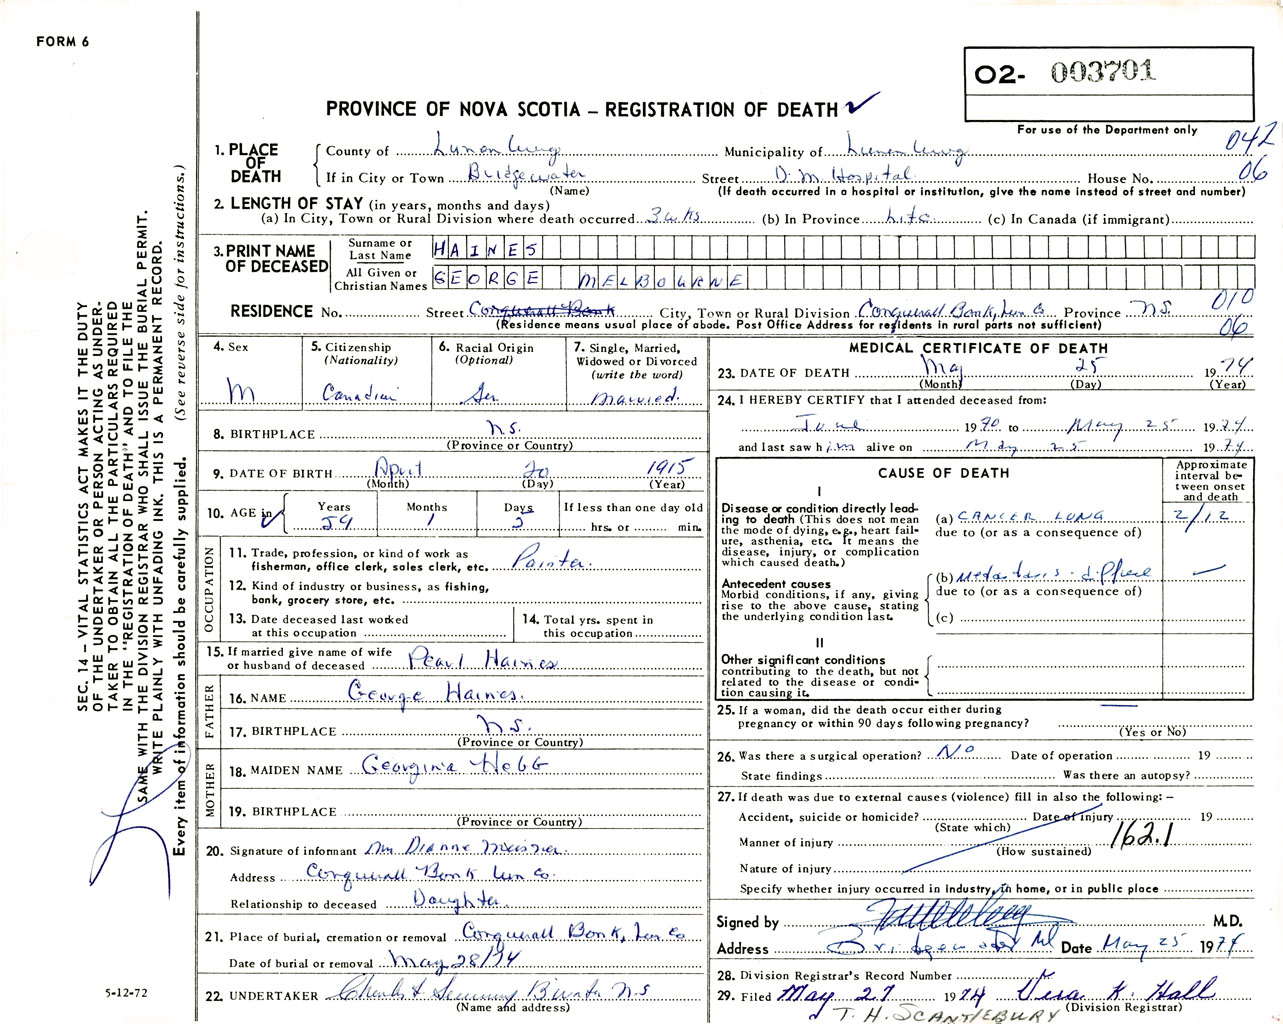 FORM 6
O2- 003701
PROVINCE OF NOVA SCOTIA – REGISTRATION OF DEATH ✓
For use of the Department only
042
06
1. PLACE OF DEATH
County of Lunenburg Municipality of Lunenburg
If in City or Town Bridgewater Street D. M. Hospital House No.
(Name) (If death occurred in a hospital or institution, give the name instead of street and number)
2. LENGTH OF STAY (in years, months and days)
(a) In City, Town or Rural Division where death occurred 3 wks (b) In Province Life (c) In Canada (if immigrant)
3. PRINT NAME OF DECEASED
Surname or Last Name HAINES
All Given or Christian Names GEORGE MELBOURNE
RESIDENCE No. Street Conquerall Bank City, Town or Rural Division Conquerall Bank, Lun Co Province N.S. 010
(Residence means usual place of abode. Post Office Address for residents in rural parts not sufficient) 06
4. Sex
M
5. Citizenship
(Nationality)
Canadian
6. Racial Origin
(Optional)
Ger
7. Single, Married,
Widowed or Divorced
(write the word)
Married.
8. BIRTHPLACE N.S.
(Province or Country)
9. DATE OF BIRTH April 20 1915
(Month) (Day) (Year)
10. AGE in ✓
Years Months Days If less than one day old
59 1 5 hrs. or min.
OCCUPATION
11. Trade, profession, or kind of work as
fisherman, office clerk, sales clerk, etc. Painter.
12. Kind of industry or business, as fishing,
bank, grocery store, etc.
13. Date deceased last worked
at this occupation
14. Total yrs. spent in
this occupation
15. If married give name of wife
or husband of deceased Pearl Haines
FATHER
16. NAME George Haines.
17. BIRTHPLACE N.S.
(Province or Country)
MOTHER
18. MAIDEN NAME Georgina Hebb
19. BIRTHPLACE
(Province or Country)
20. Signature of informant Mrs Dianne Meisner.
Address Conquerall Bank Lun Co.
Relationship to deceased Daughter.
21. Place of burial, cremation or removal Conquerall Bank, Lun Co
Date of burial or removal May 28/74
22. UNDERTAKER N.S
(Name and address)
MEDICAL CERTIFICATE OF DEATH
23. DATE OF DEATH May 25 1974
(Month) (Day) (Year)
24. I HEREBY CERTIFY that I attended deceased from:
June 1970 to May 25 1974
and last saw him alive on May 25 1974
CAUSE OF DEATH
Approximate
interval be-
tween onset
and death
I
Disease or condition directly lead-
ing to death (This does not mean
the mode of dying, e.g., heart fail-
ure, asthenia, etc. It means the
disease, injury, or complication
which caused death.)
(a) CANCER LUNG 2/12
due to (or as a consequence of)
Antecedent causes
Morbid conditions, if any, giving
rise to the above cause, stating
the underlying condition last.
(b) Metastasis - diffuse —
due to (or as a consequence of)
(c)
II
Other significant conditions
contributing to the death, but not
related to the disease or condi-
tion causing it.
25. If a woman, did the death occur either during
pregnancy or within 90 days following pregnancy? —
(Yes or No)
26. Was there a surgical operation? No Date of operation 19
State findings Was there an autopsy?
27. If death was due to external causes (violence) fill in also the following: –
Accident, suicide or homicide? Date of injury 19
(State which)
Manner of injury 162.1
(How sustained)
Nature of injury
Specify whether injury occurred in industry, in home, or in public place
Signed by M.D.
Address Bridgewater Date May 25 1974
28. Division Registrar's Record Number
29. Filed May 27 1974 Vera K. Hall
(Division Registrar)
T. H. SCANTLEBURY
SEC. 14 – VITAL STATISTICS ACT MAKES IT THE DUTY
OF THE UNDERTAKER OR PERSON ACTING AS UNDER-
TAKER TO OBTAIN ALL THE PARTICULARS REQUIRED
IN THE "REGISTRATION OF DEATH" AND TO FILE THE
SAME WITH THE DIVISION REGISTRAR WHO SHALL ISSUE THE BURIAL PERMIT.
WRITE PLAINLY WITH UNFADING INK. THIS IS A PERMANENT RECORD.
Every item of information should be carefully supplied. (See reverse side for instructions.)
5-12-72